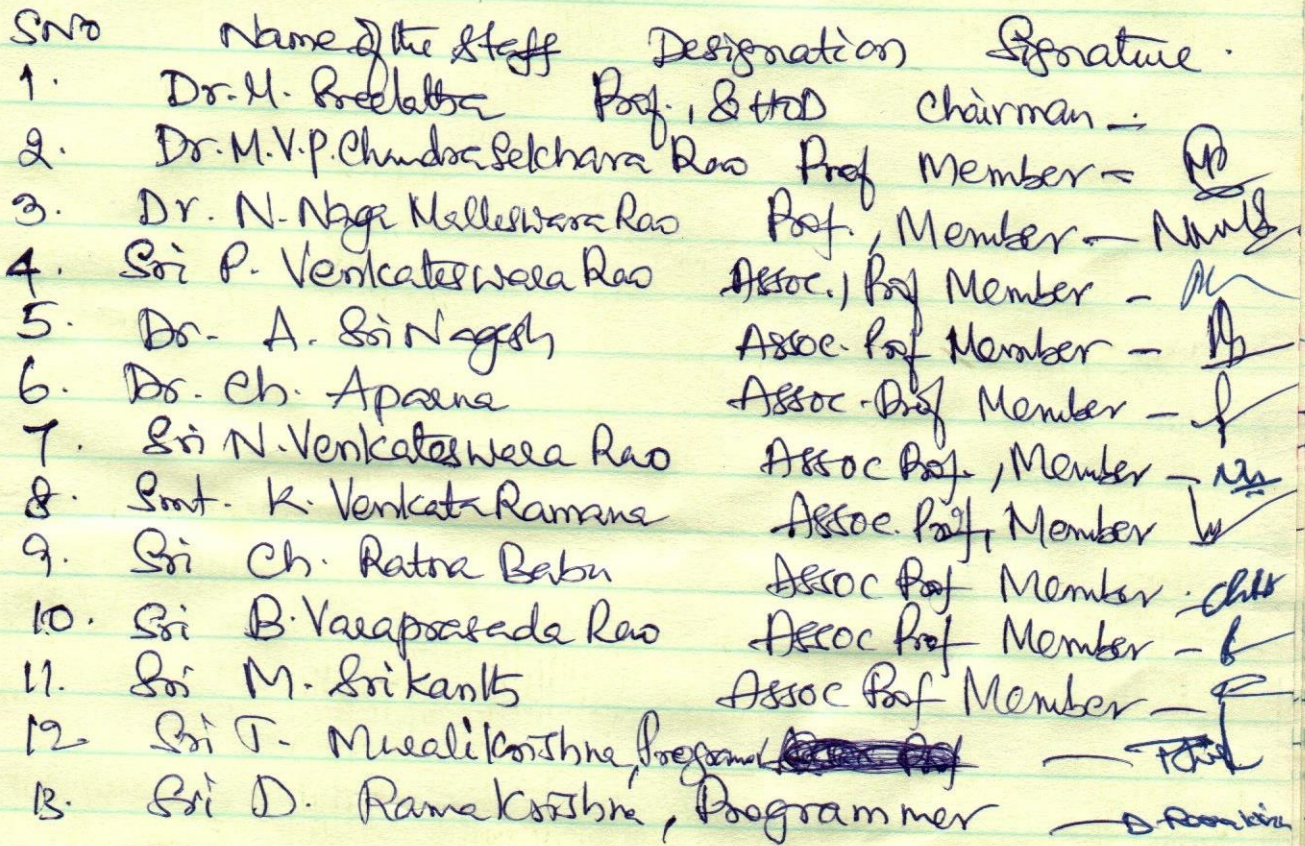 SNo Name of the Staff Designation Signature.
1. Dr. M. Sreelatha Prof., & HOD Chairman -
2. Dr. M.V.P. Chandra Sekhara Rao Prof Member -
3. Dr. N. Naga Malleswara Rao Prof., Member -
4. Sri P. Venkateswara Rao Assoc., Prof Member -
5. Dr. A. Sri Nagesh Assoc. Prof Member -
6. Dr. Ch. Aparna Assoc. Prof Member -
7. Sri N. Venkateswara Rao Assoc Prof., Member -
8. Smt. K. Venkata Ramana Assoc. Prof, Member
9. Sri Ch. Ratna Babu Assoc Prof Member -
10. Sri B. Varaprasada Rao Assoc Prof Member -
11. Sri M. Srikanth Assoc Prof Member -
12. Sri T. Muralikrishna, Programmer -
13. Sri D. Ramakrishna, Programmer - D. Ramakrishna